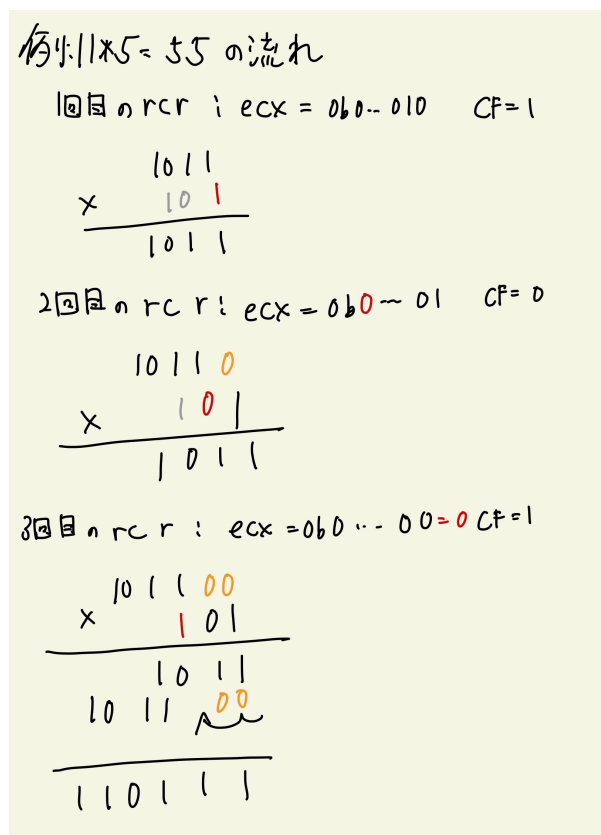 例:11*5=55の流れ
1回目のrcr: ecx = 0b0..010 CF=1
1011
× 101
1011
2回目のrcr: ecx = 0b0~01 CF=0
10110
× 101
1011
3回目のrcr: ecx=0b0...00=0 CF=1
101100
× 101
1011
101100
110111